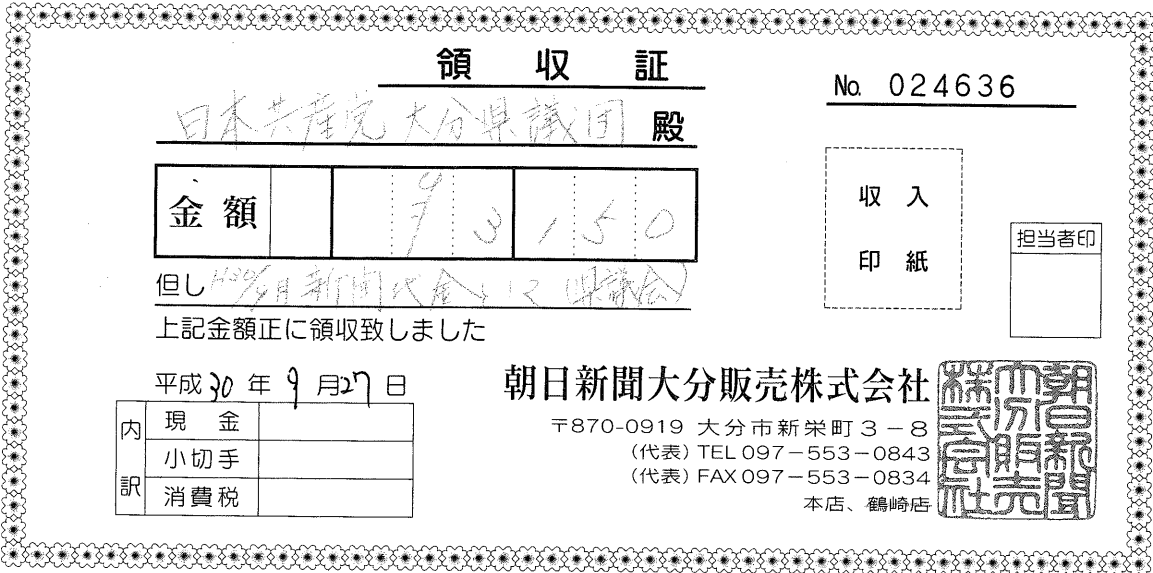 領収証
No. 024636
日本共産党大分県議団 殿
金額 3,150
収入
印紙
担当者印
但し 月新聞代金として(県議会)
上記金額正に領収致しました
平成30年9月27日
朝日新聞大分販売株式会社
〒870-0919 大分市新栄町3-8
(代表)TEL097-553-0843
(代表)FAX097-553-0834
本店、鶴崎店
内訳
現金
小切手
消費税
朝日新聞大分販売株式会社